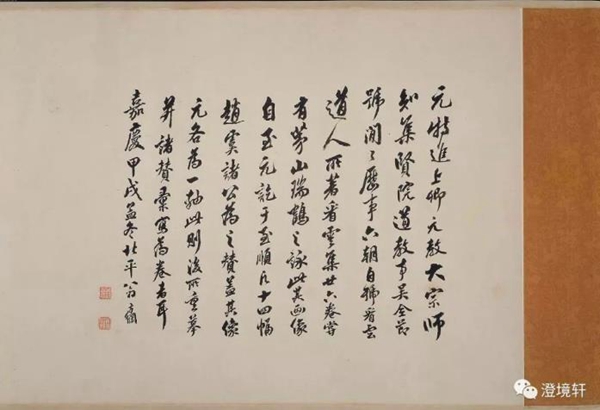 元特進上卿元教大宗師
知集賢院道教事吳全節
號閒〻歷事六朝自號看雲
道人所著看雲集廿六卷嘗
有茅山瑞鶴之詠此其画像
自至元訖于至順凡十四幅
趙虞諸公為之贊蓋其像
元各為一軸此則後所重摹
并諸贊彙寫為卷者耳
嘉慶甲戌孟冬北平翁方綱
澄境轩